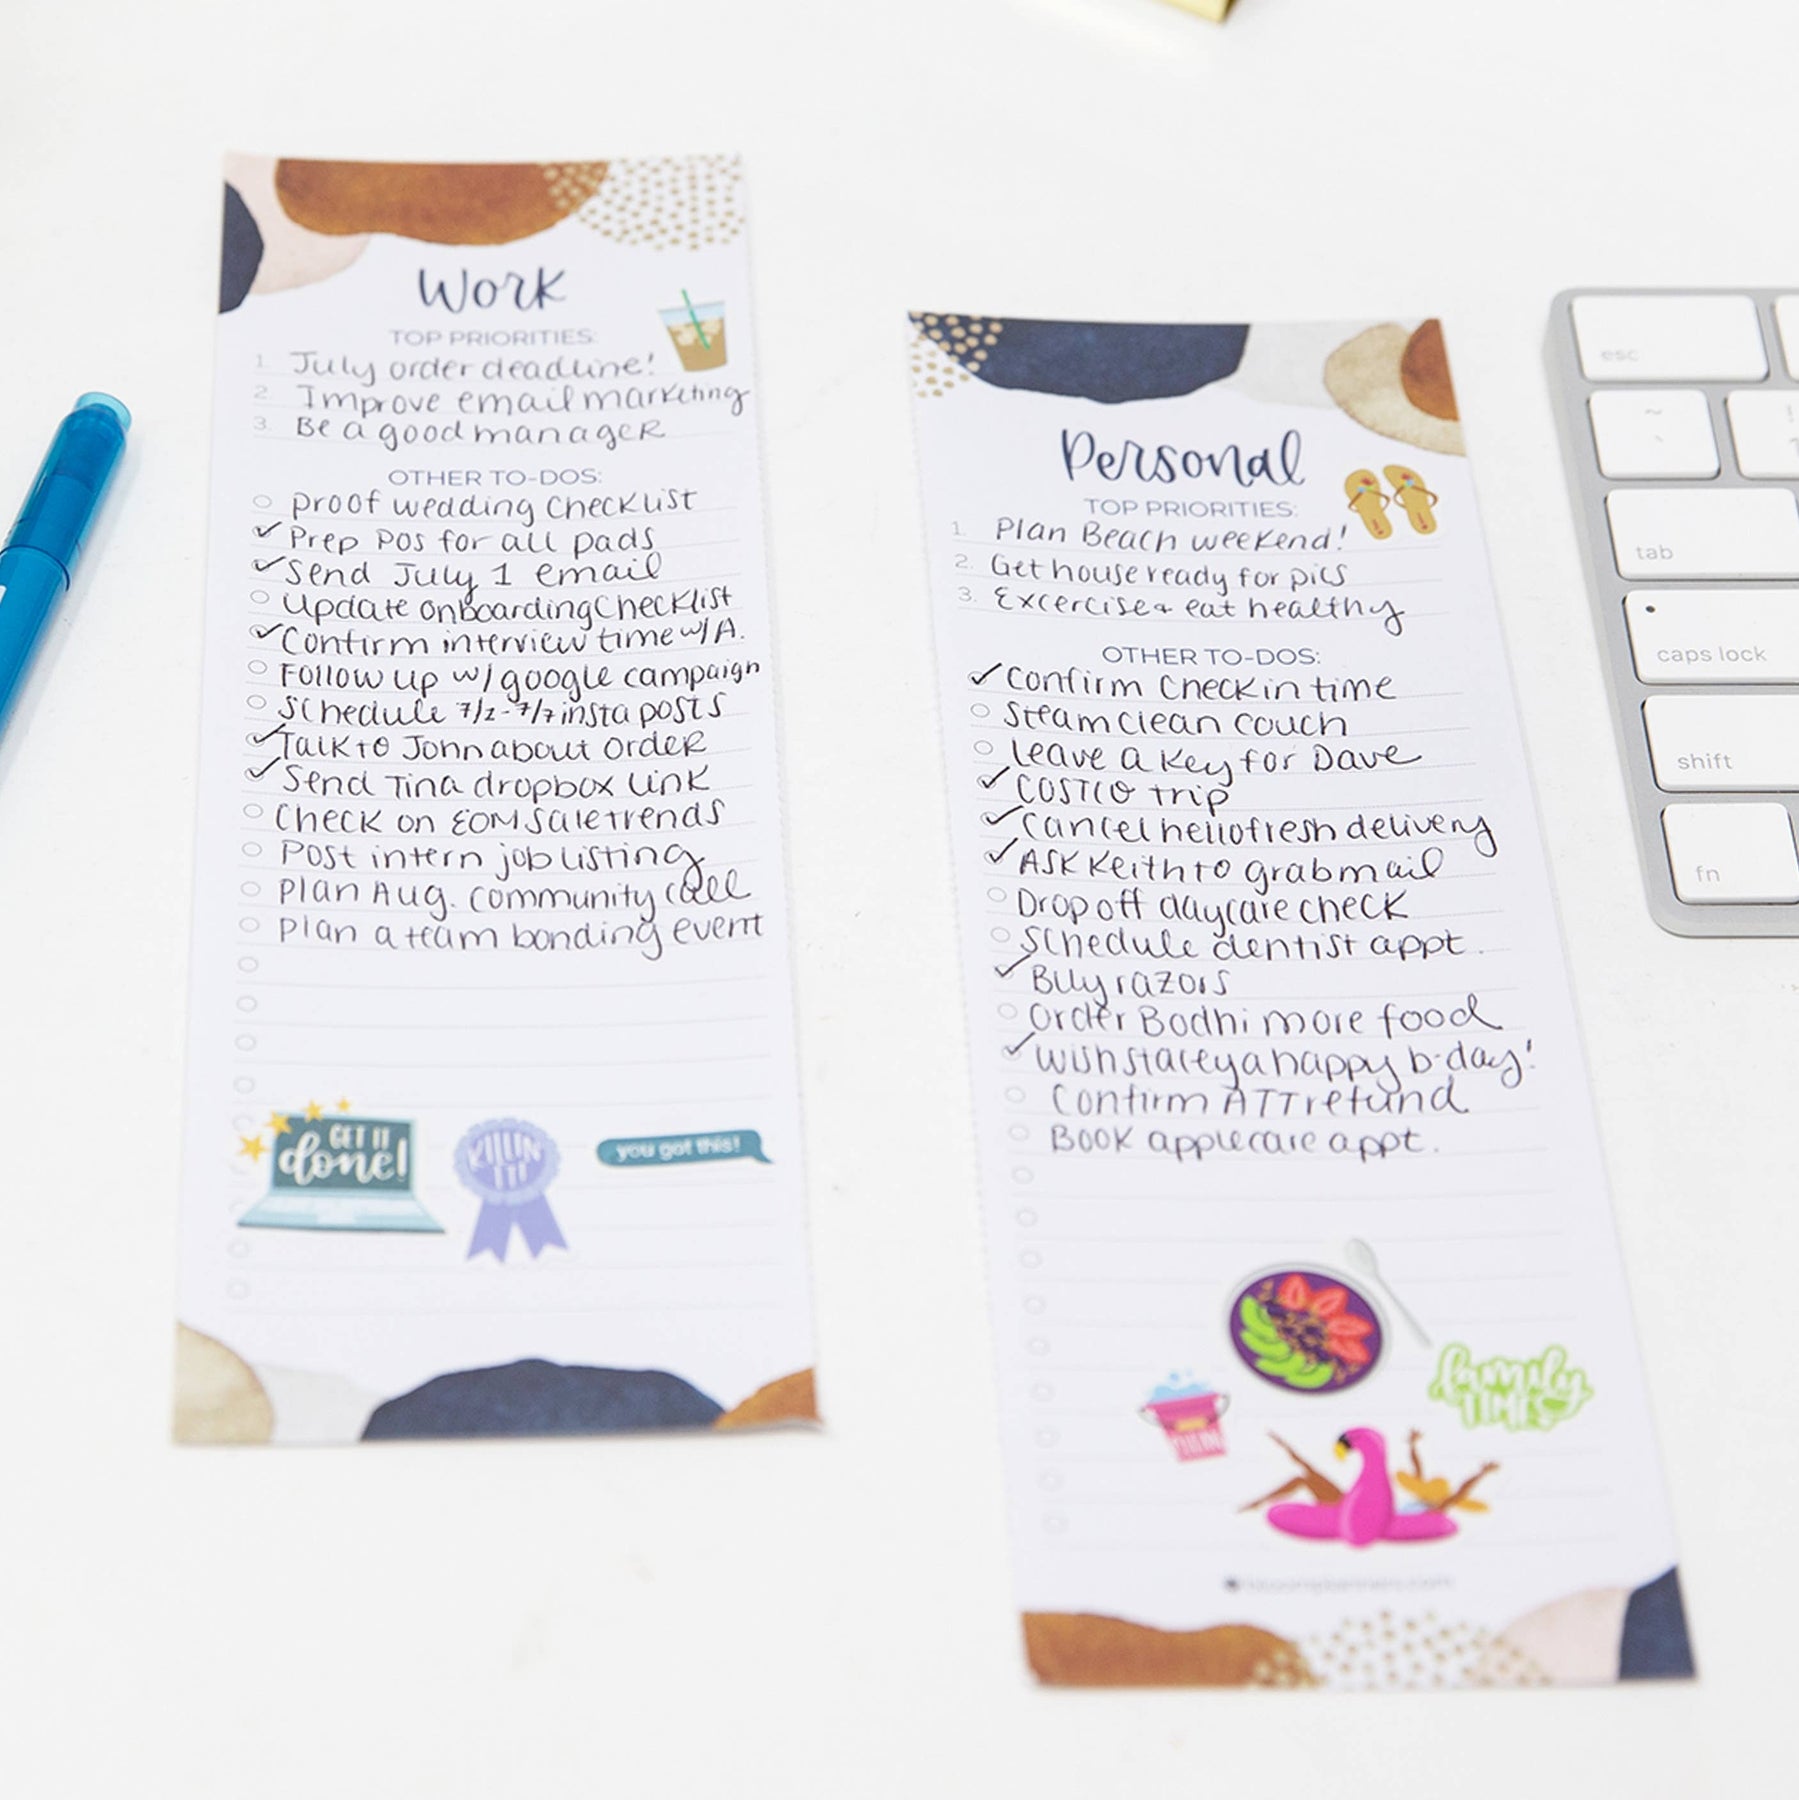 Work
TOP PRIORITIES:
1. July order deadline!
2. Improve email marketing
3. Be a good manager
OTHER TO-DOS:
proof wedding checklist
Prep POs for all pads
Send July 1 email
update onboarding checklist
Confirm interview time w/ A.
Follow up w/ google campaign
Schedule 7/2-7/7 insta posts
Talk to John about order
Send Tina dropbox link
Check on EOM sale trends
Post intern job listing
Plan Aug. community call
plan a team bonding event
GET IT
done!
KILLIN
IT!
you got this!
Personal
TOP PRIORITIES:
1. Plan Beach weekend!
2. Get house ready for pics
3. Excercise + eat healthy
OTHER TO-DOS:
Confirm Check in time
Steam clean couch
leave a key for Dave
COSTCO trip
Cancel hellofresh delivery
ASK Keith to grab mail
Drop off daycare check
Schedule dentist appt.
Buy razors
Order Bodhi more food
wish stacey a happy b-day!
Confirm ATT refund
BOOK applecare appt.
family
TIME
bloomplanners.com
esc
~
`
!
1
tab
caps lock
shift
fn